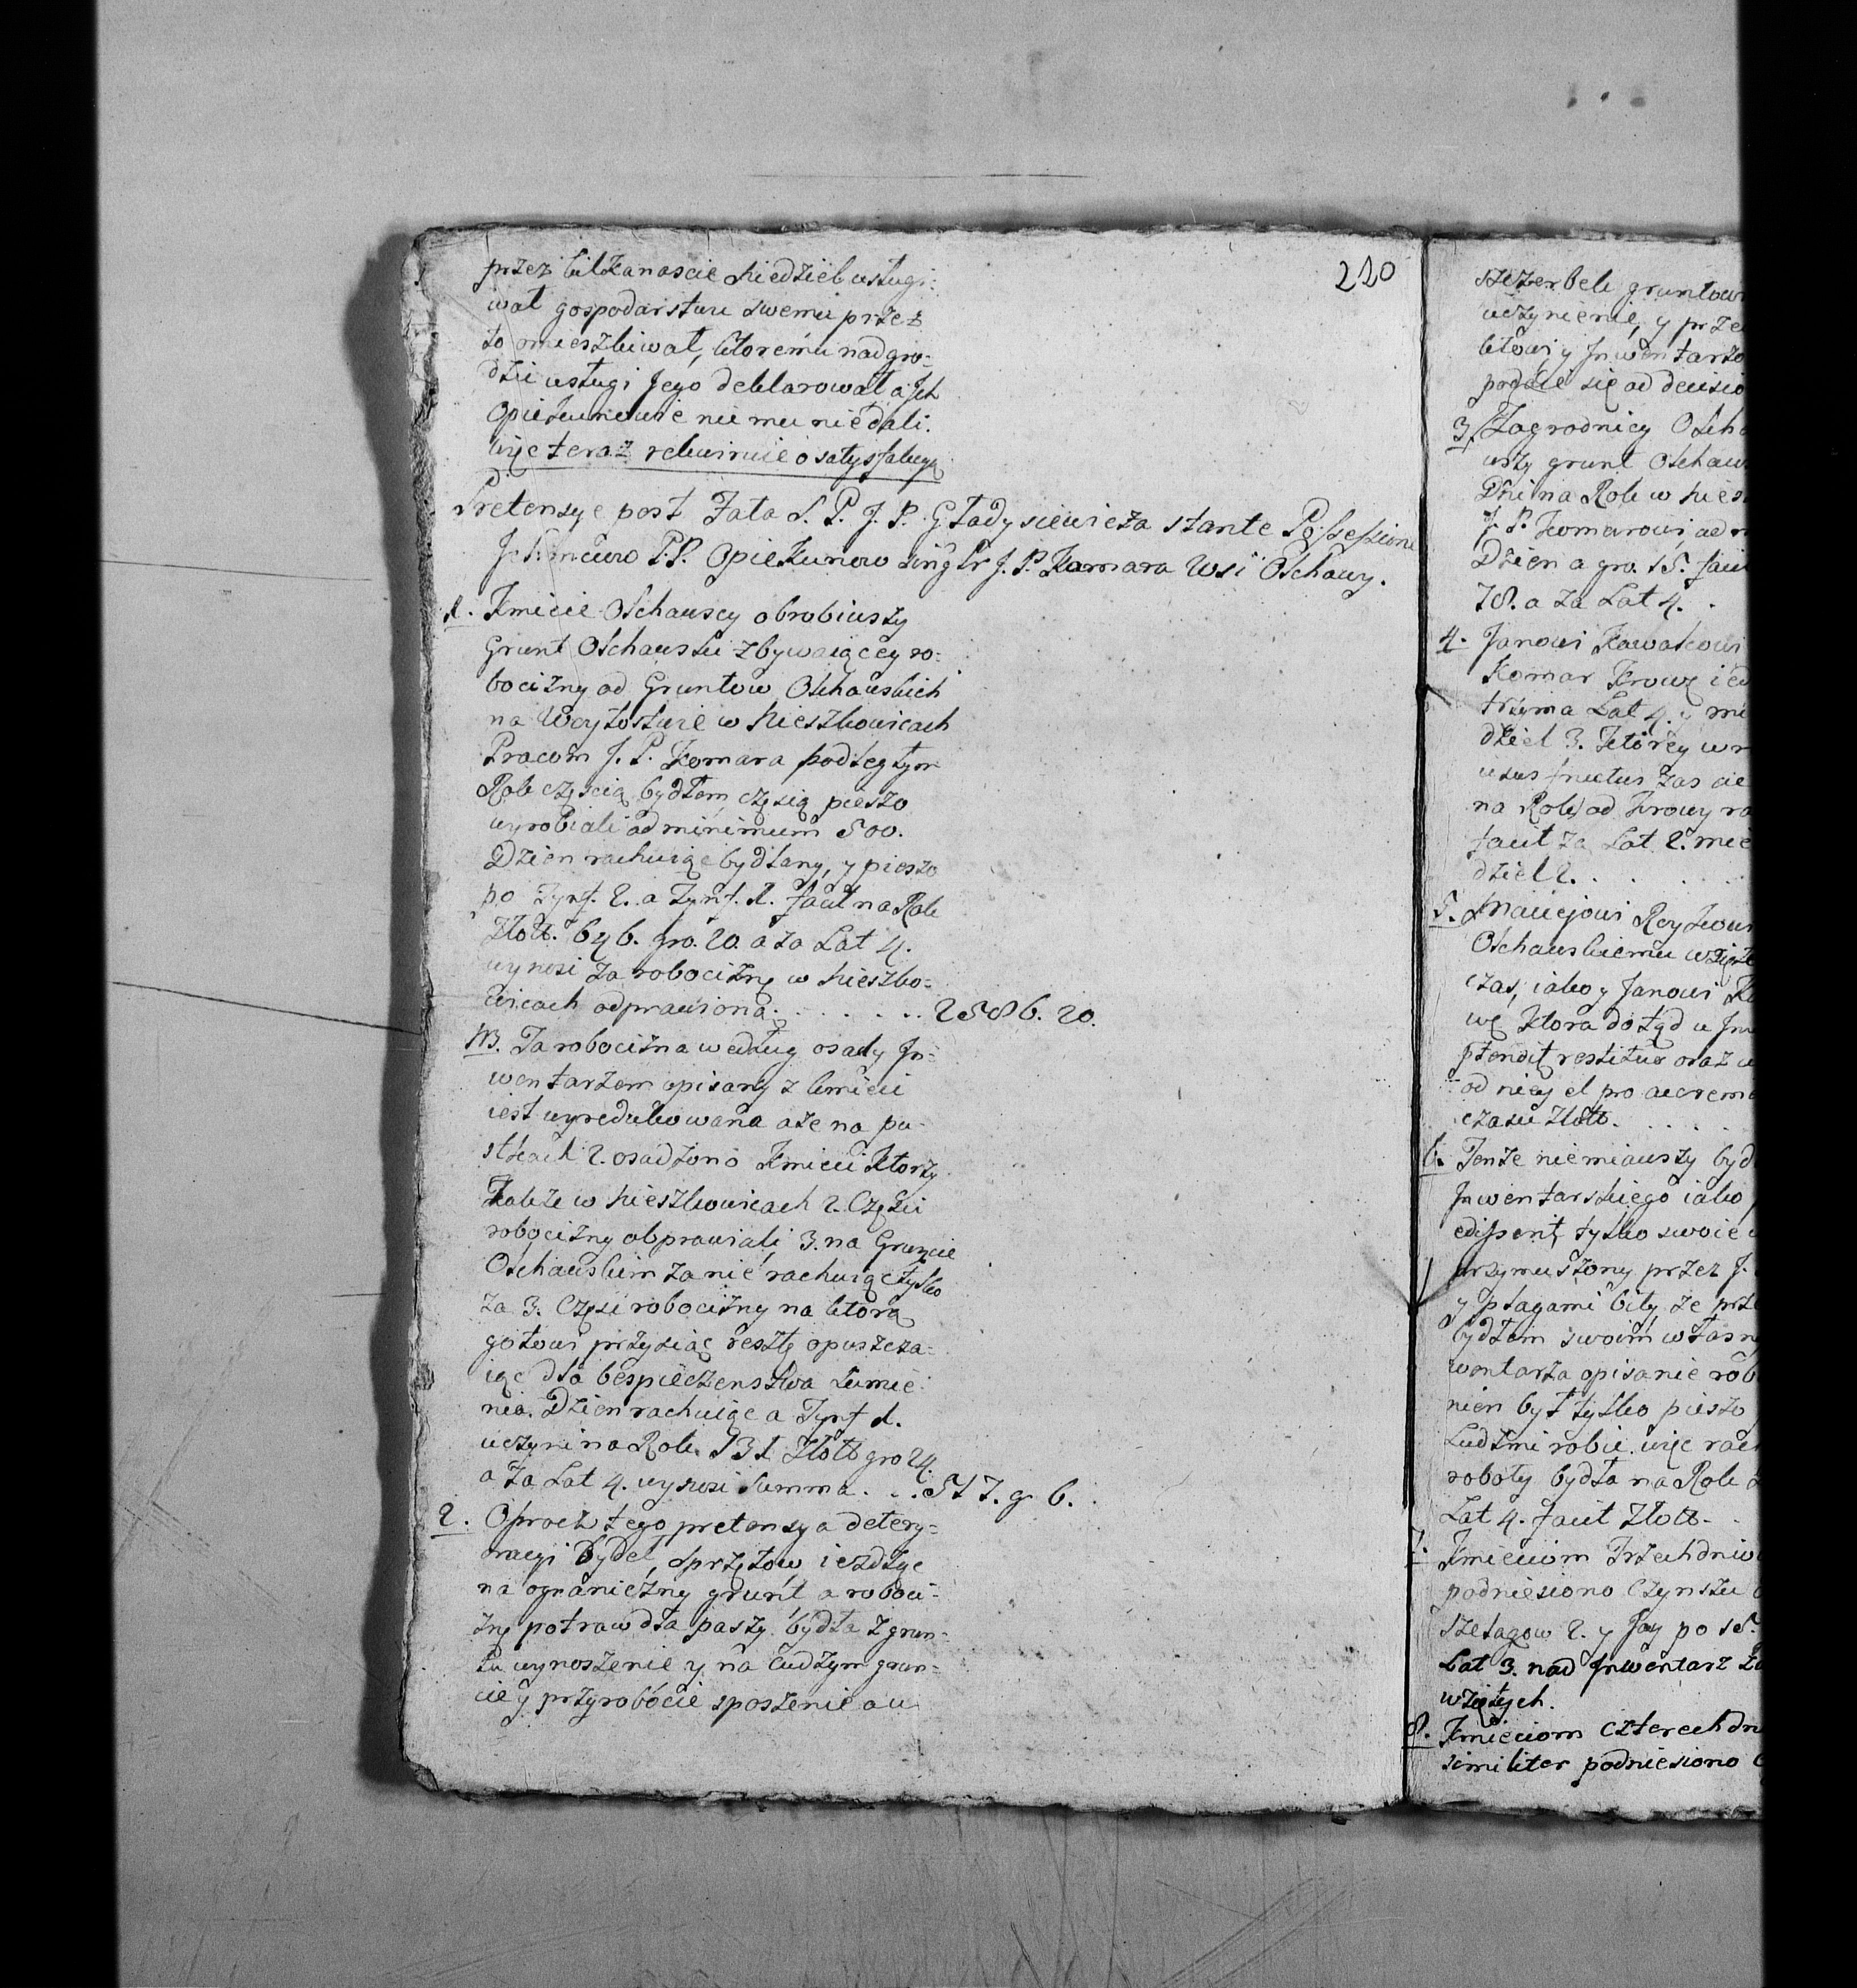 220
przez kilkanascie Niedziel usługi:
wał gospodarstwu swemu przez
to omieszkiwał, ktoremu nadgro-
dzić usługi Jego deklarował a Jch
Opiekunowie nic mu nie dali.
więc teraz rekwiruie o satysfakcyą
Pretensye post Fata S. P. J. P. Gładysiewicza stante Possessione
Jchmciow P.P. Opiekunow singlr J. P. Komara Wsi Olchawy.
1. Kmiecie Olchawscy obrobiwszy
Grunt Olchawski zbywaiącey ro:
bocizny od Gruntow Olchawskich
na Woytostwie w Nieszkowicach
Pracom J. P. Komara podległym
Rok częscią bydłem częscią pieszo
wyrobiali ad minimum 500.
Dzien rachuiąc bydlany, y pieszo
po Tynf. 2. a Tynf. 1. facit na Rok
Złott. 646. gro. 20. a za Lat 4.
wynosi za robociznę w Nieszko-
wicach odprawioną . . . . . . 2586. 20.
NB. Ta robocizna według osady In-
wentarzem opisany z kmieci
iest wyredukowana a że na pu-
stkach 2. osadzono Kmieci ktorzy
Także w Nieszkowicach 2. Części
robocizny odprawiali 3. na Gruncie
Olchawskim za nię rachuiąc tylko
za 3. Części robocizny na ktorą
gotowi przysiąc resztę opuszcza-
iąc dla bespieczenstwa Sumie-
nia. Dzien rachuiąc a Tynf 1.
uczyni na Rok. 131 Złott gro 24.
a za Lat 4. wynosi Summa . . . 517. g. 6.
2. Oprocz tego pretensya detery-
oracyi Bydeł, Sprzętow ieżdżąc
na ograniczny grunt a roboci-
znę potraw dla paszy bydła z grun-
tu wynoszenie y na Cudzym grun-
cie y przy robocie spaszenie a u
szczerbek gruntow
uczynienie, y prze
ktowi y Jnwentarzo
podaie się ad decisio
3. Zagrodnicy Olcha
wszy grunt Olchaw
Dni na Rok w Nies
J. P. Komarowi, ad
Dzien a gro. 15. faci
78. a za Lat 4. .
4. Janowi Kawalcowi
Komar Krowę i
trzyma Lat 4. y mi
dziel 3. ktorey
usus fructus zas
na Rok, od krowy
facit za Lat 2. mie
dziel 2. . . .
5. Maciejowi
Olchawskiemu wzięte
czas, iako y Janowi
wę ktora dotąd u
restitue oraz
od niey et pro
czasu złott. . . . .
6. Tenże niemiawszy byd
Jnwentarskiego iako
tylko swoie
przymuszony przez J.
y plagami bity że prze
bydłem swoim własn
wentarza opisanie rob
nien był tylko pieszo
Ludzmi robic. więc rac
roboty bydła na Rok
Lat 4. facit Złott. .
7. Kmieciom Trzechdniow
podniesiono Czynszu
Szelągow 2. y Jay po 15.
Lat 3. nad Jnwentarz
wziętych.
8. Kmieciom Czterechdn
similiter podniesiono